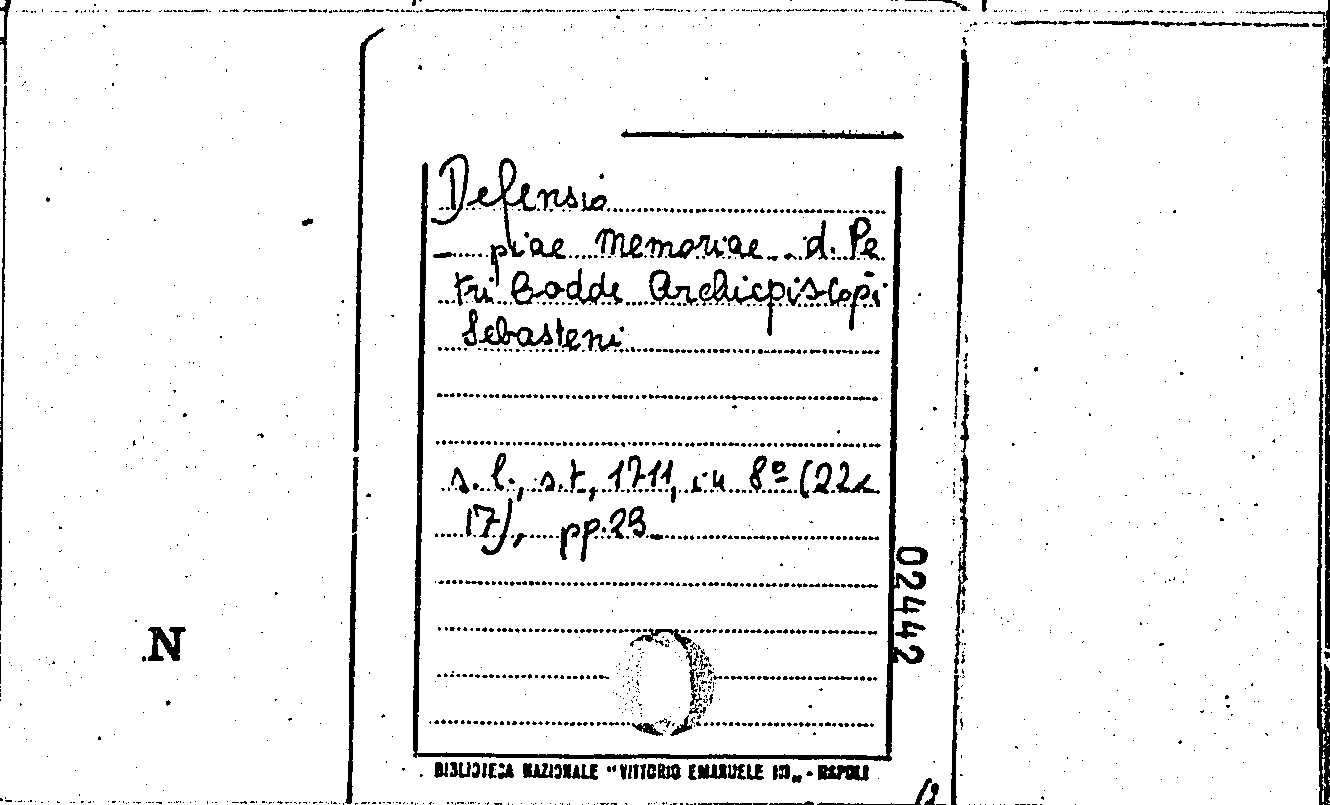 Defensio
piae Memoriae d. Pe
tri Codde Archiepiscopi
Sebasteni
s. l., s. t, 1711, in 8º (22x
17), pp. 23
02442
N
BIBLIOTECA NAZIONALE "VITTORIO EMANUELE III„ - NAPOLI